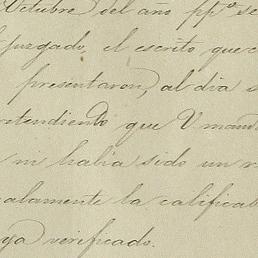 Octubre del año pp.º se
juzgado, el escrito que
presentaron, al dia s
retendiendo que V. mand
ni habia sido un
alamente la calificab
ya verificado.